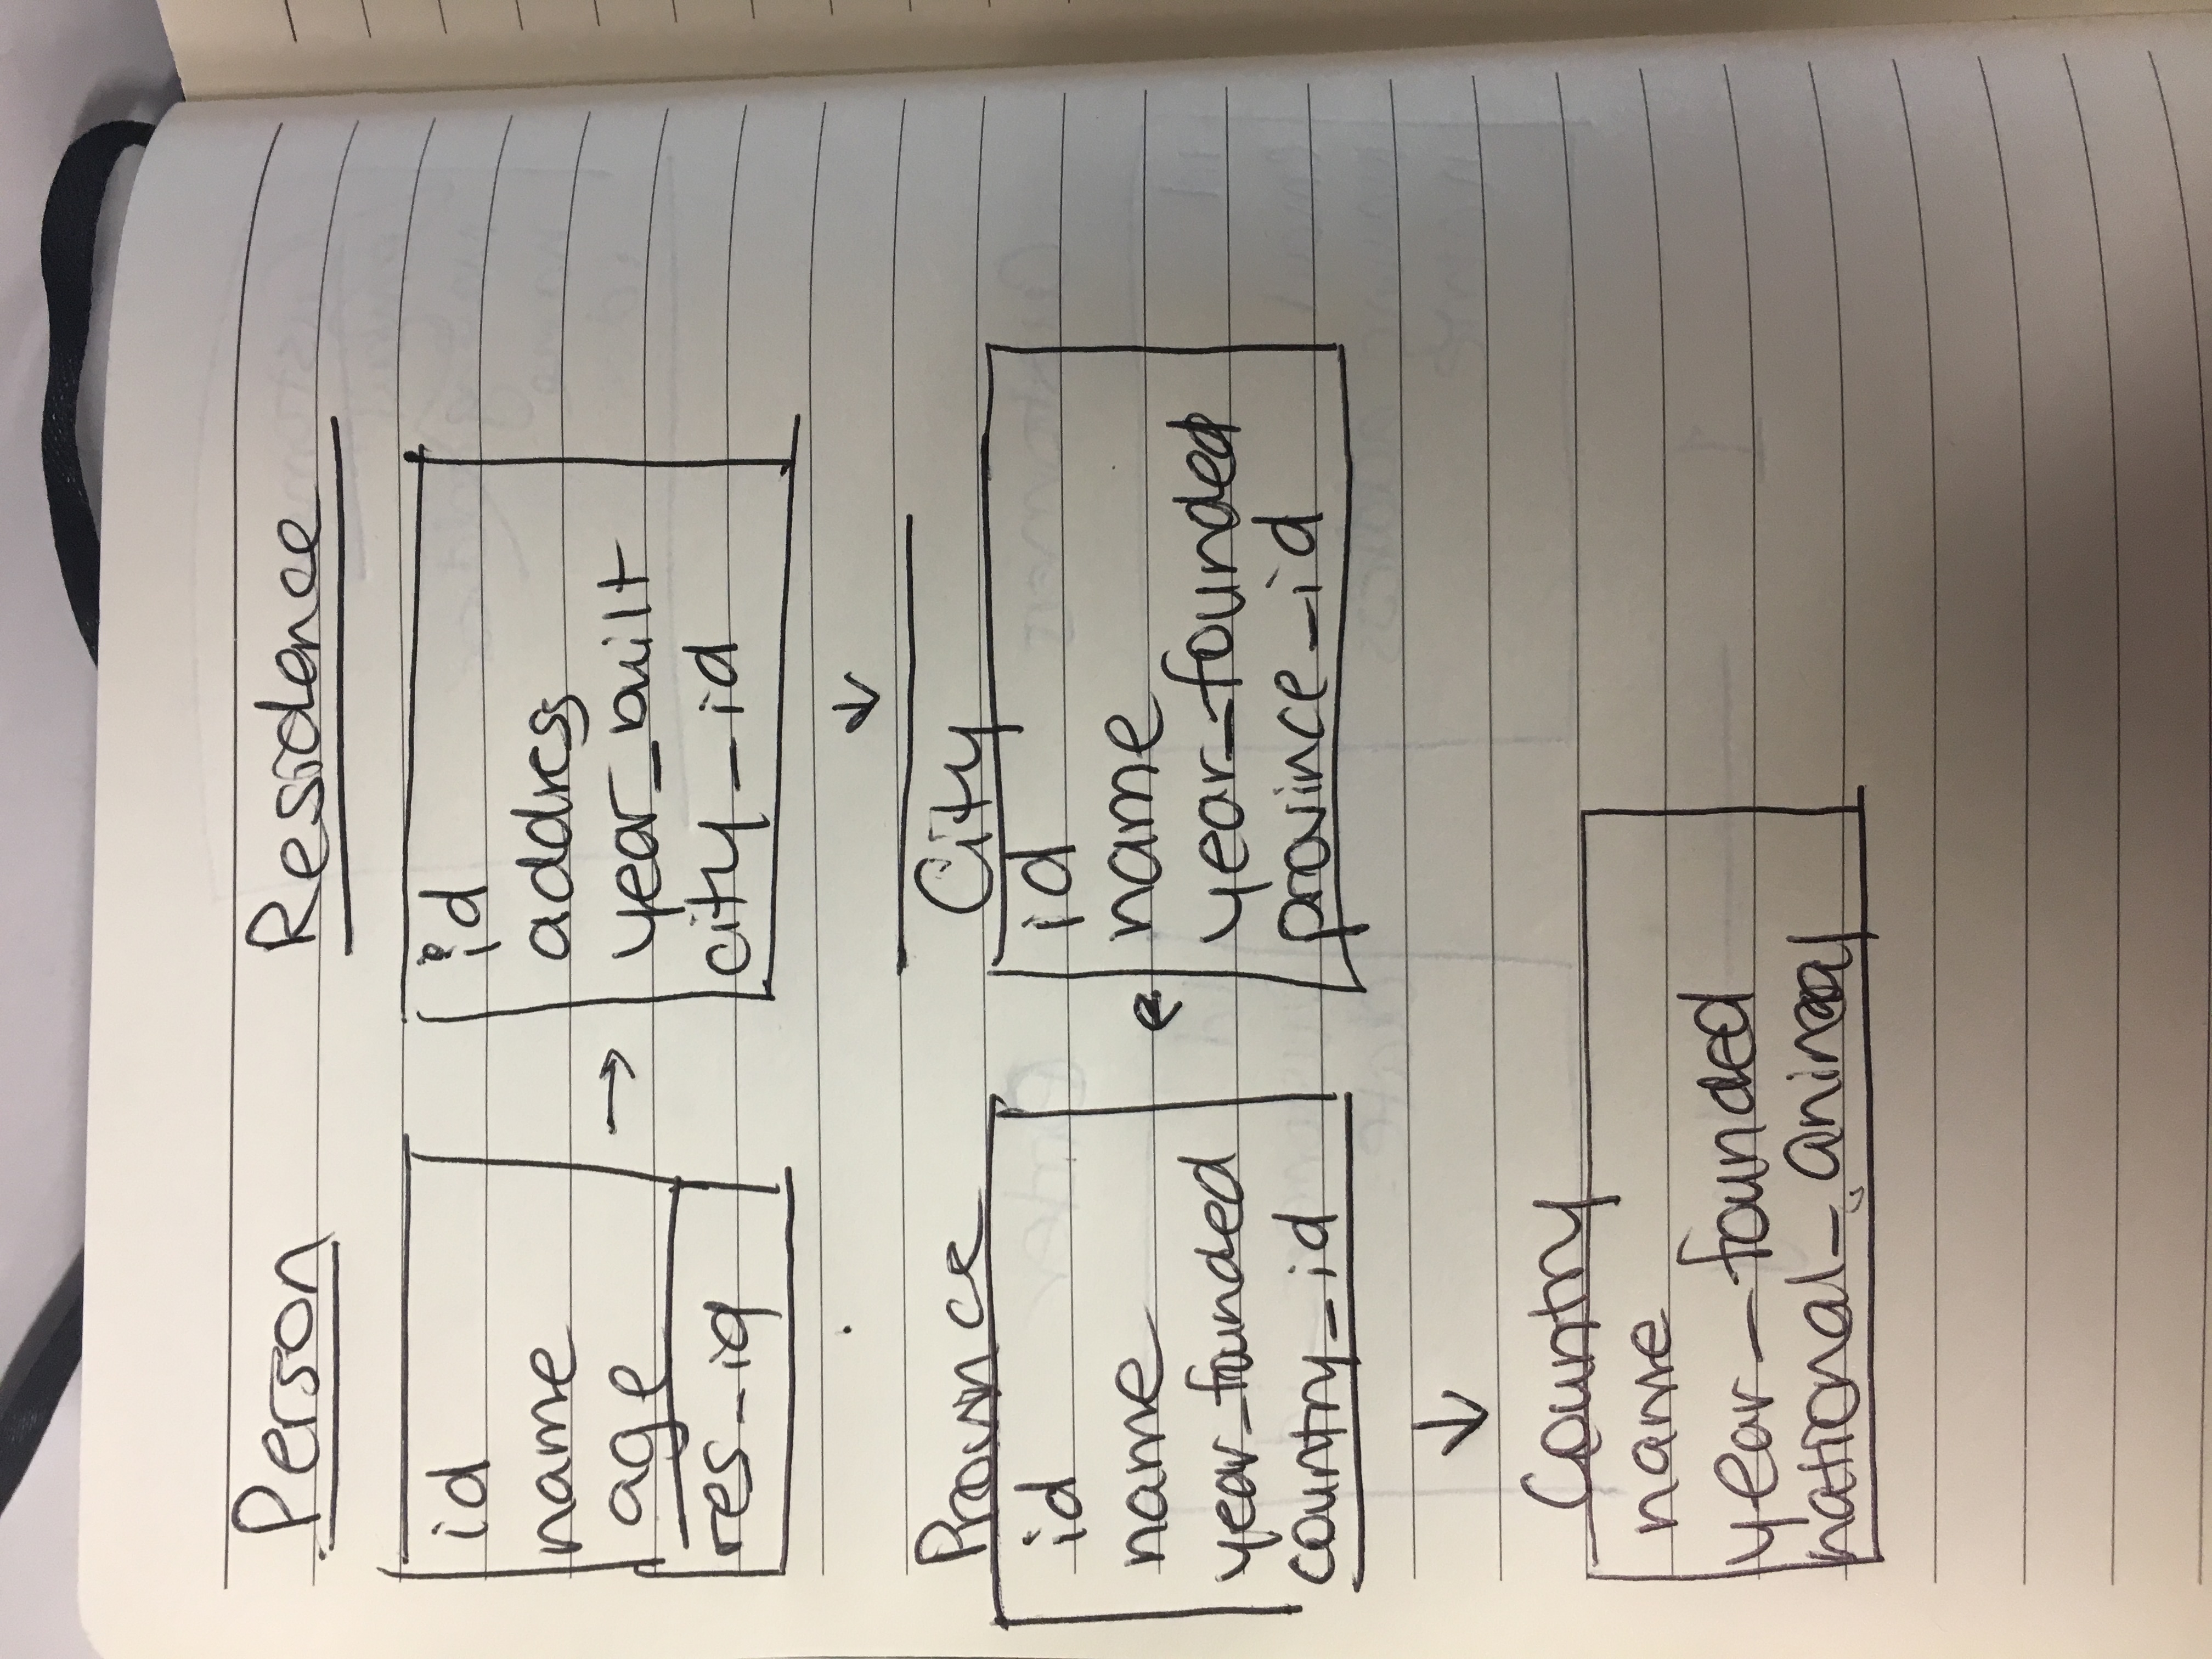 Person
id
name
age
res_id
Residence
id
address
year_built
city_id
City
id
name
year_founded
province_id
Province
id
name
year_founded
country_id
Country
name
year_founded
national_animal